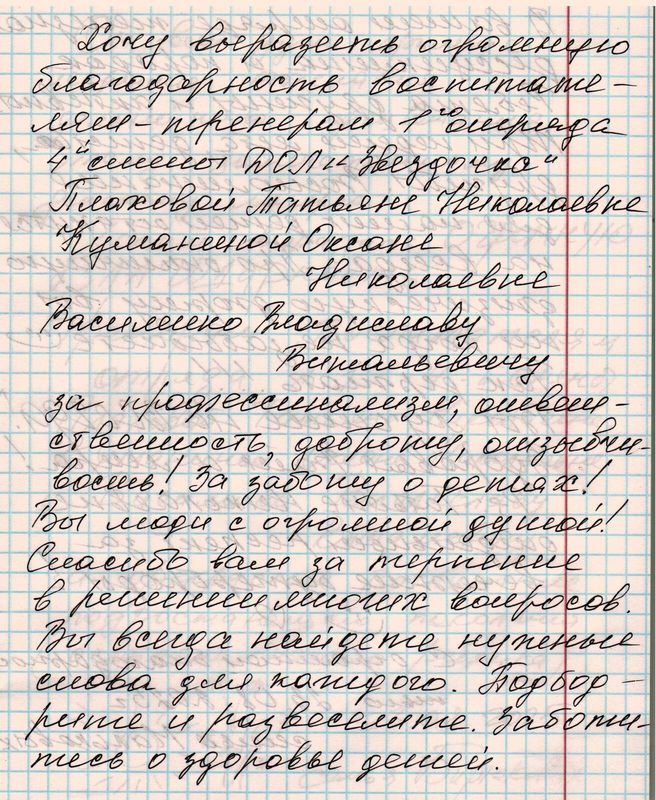 Хочу выразить огромную
благодарность воспитате-
лям-тренерам 1го отряда
4й смены ДОЛ "Звездочка"
Плаховой Татьяне Николаевне
Куманиной Оксане
Николаевне
Василенко Владиславу
Витальевичу
за профессинализм, ответ-
ственность, доброту, отзывчи-
вость! За заботу о детях!
Вы люди с огромной душой!
Спасибо вам за терпение
в решении многих вопросов.
Вы всегда найдете нужные
слова для каждого. Подбод-
рите и развеселите. Заботи-
тесь о здоровье детей.